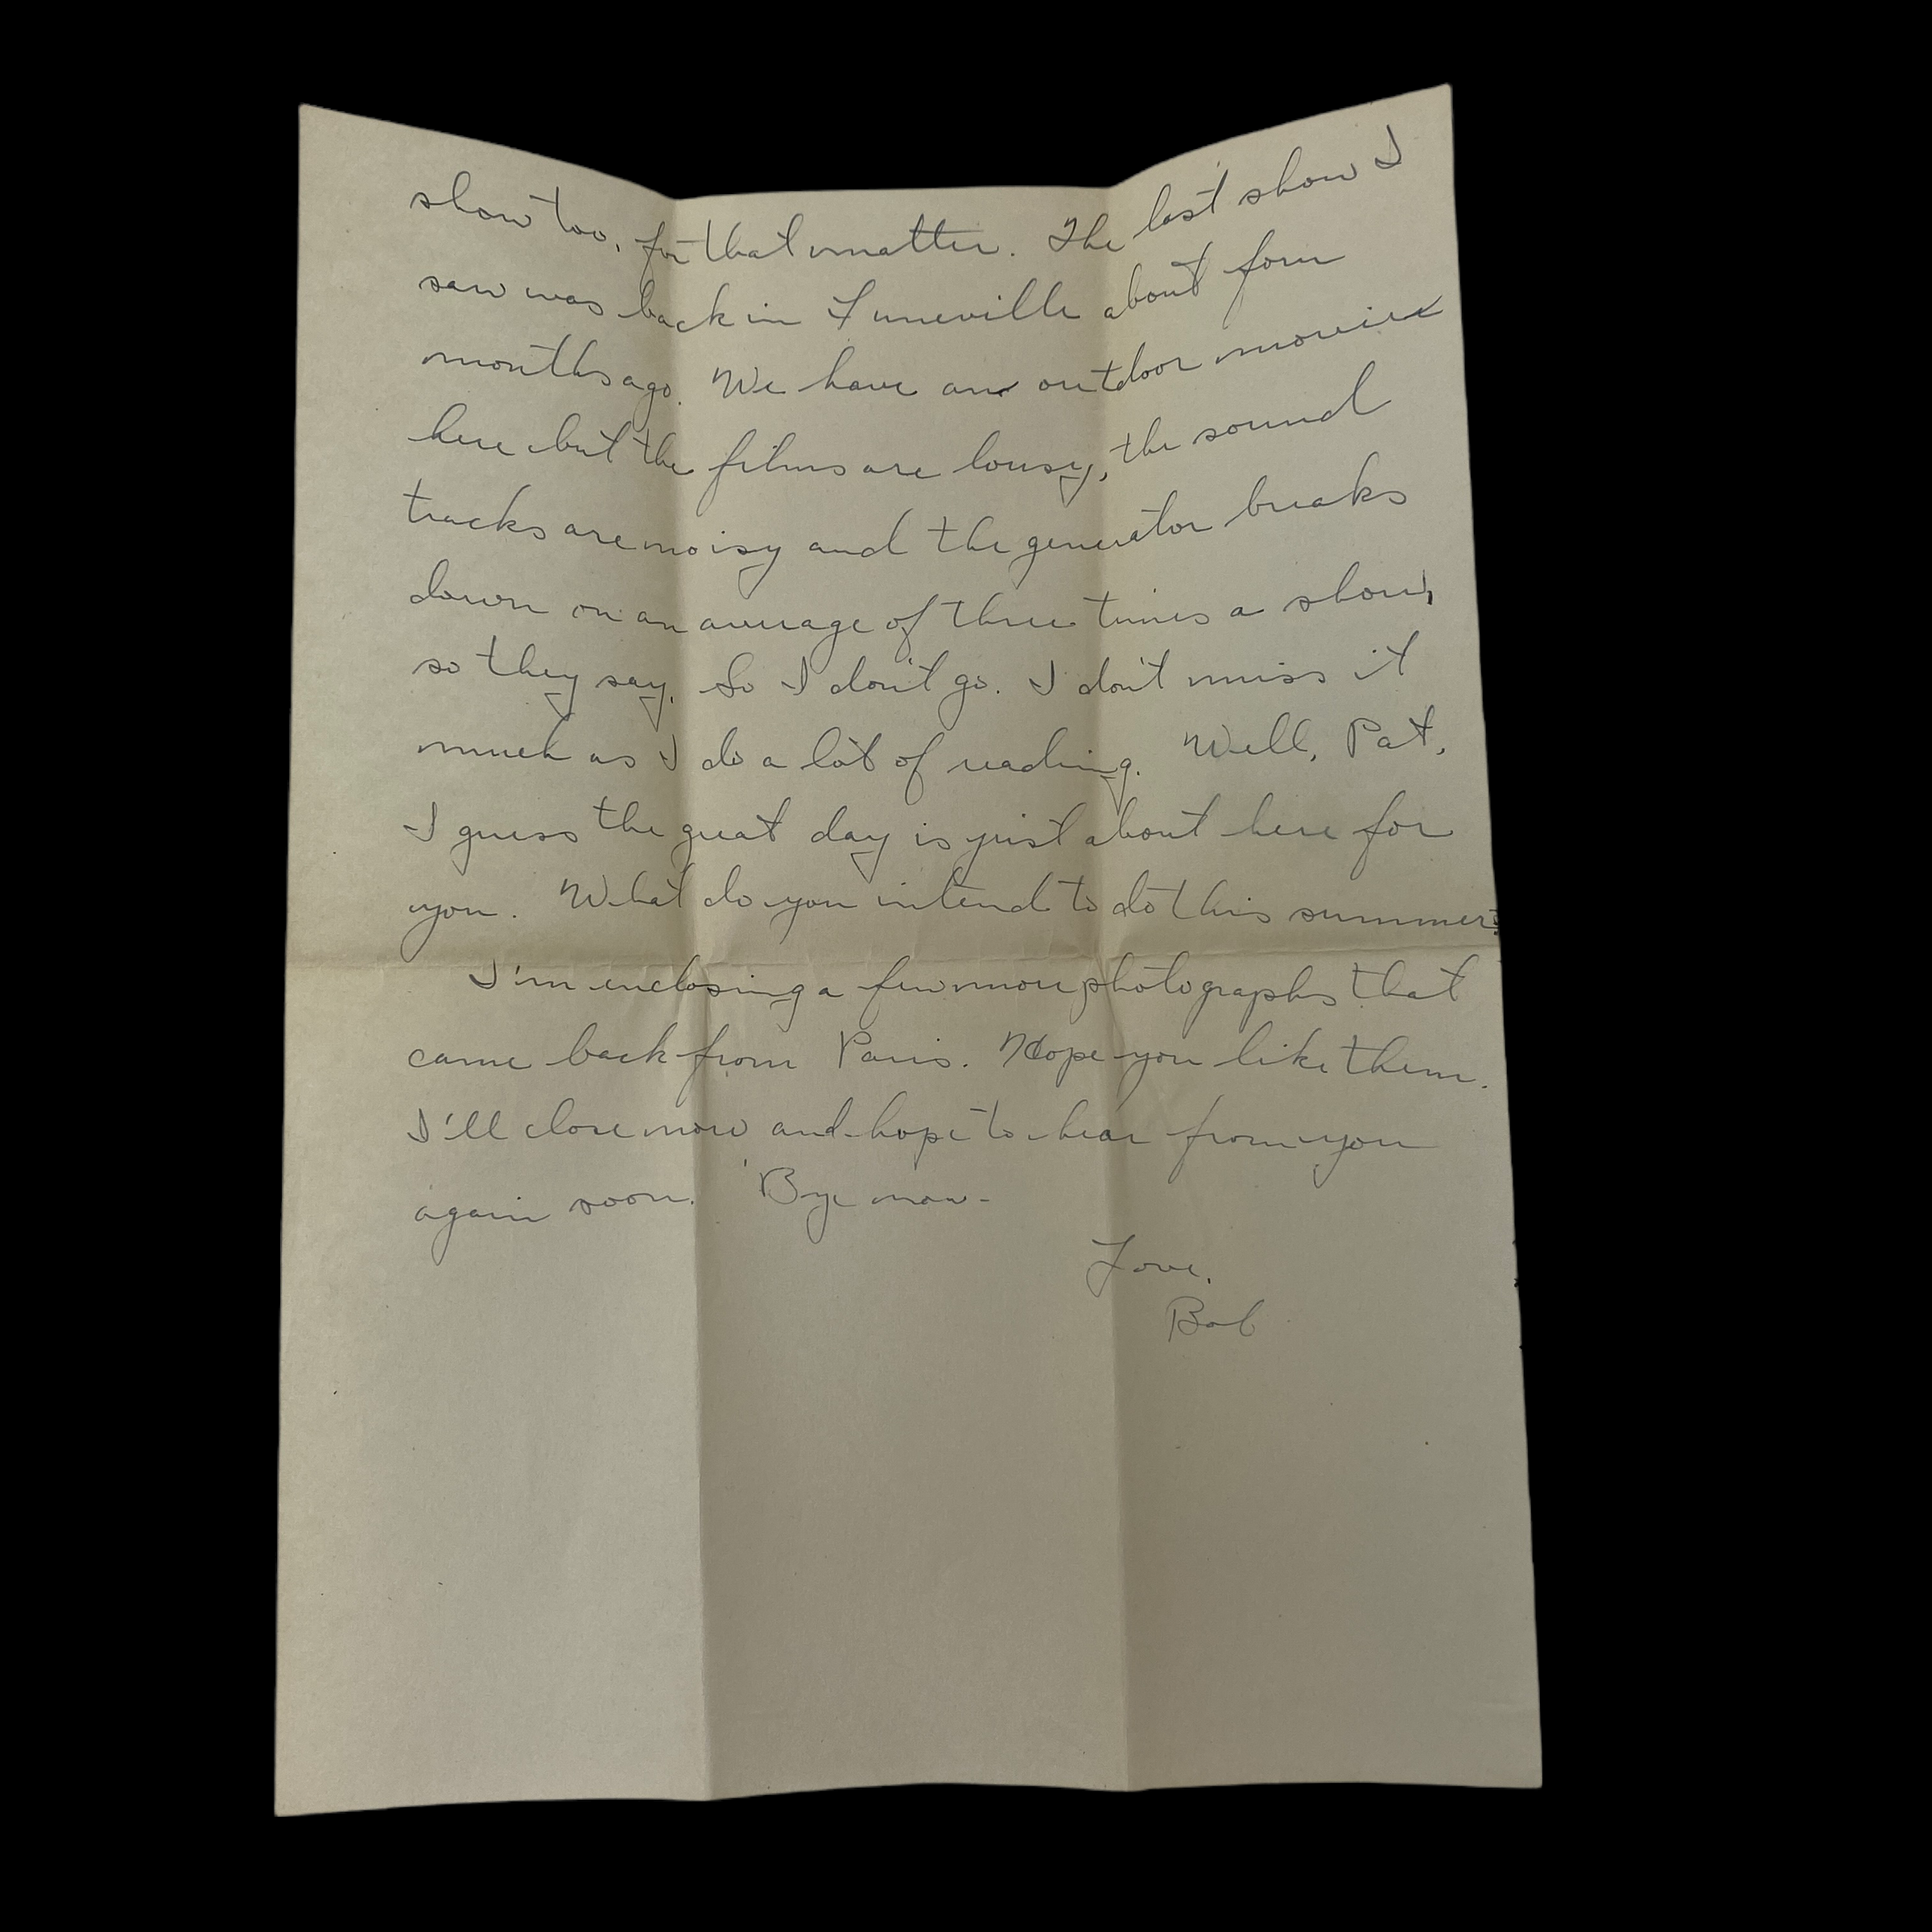 show too, for that matter. The last show I
saw was back in Luneville about four
months ago. We have an outdoor movie
here but the films are lousy, the sound
tracks are noisy and the generator breaks
down on an average of three times a show,
so they say. So I don't go. I don't miss it
much as I do a lot of reading. Well, Pat,
I guess the great day is just about here for
you. What do you intend to do this summer?
I'm enclosing a few more photographs that
came back from Paris. Hope you like them.
I'll close now and hope to hear from you
again soon. 'Bye now -
Love,
Bob